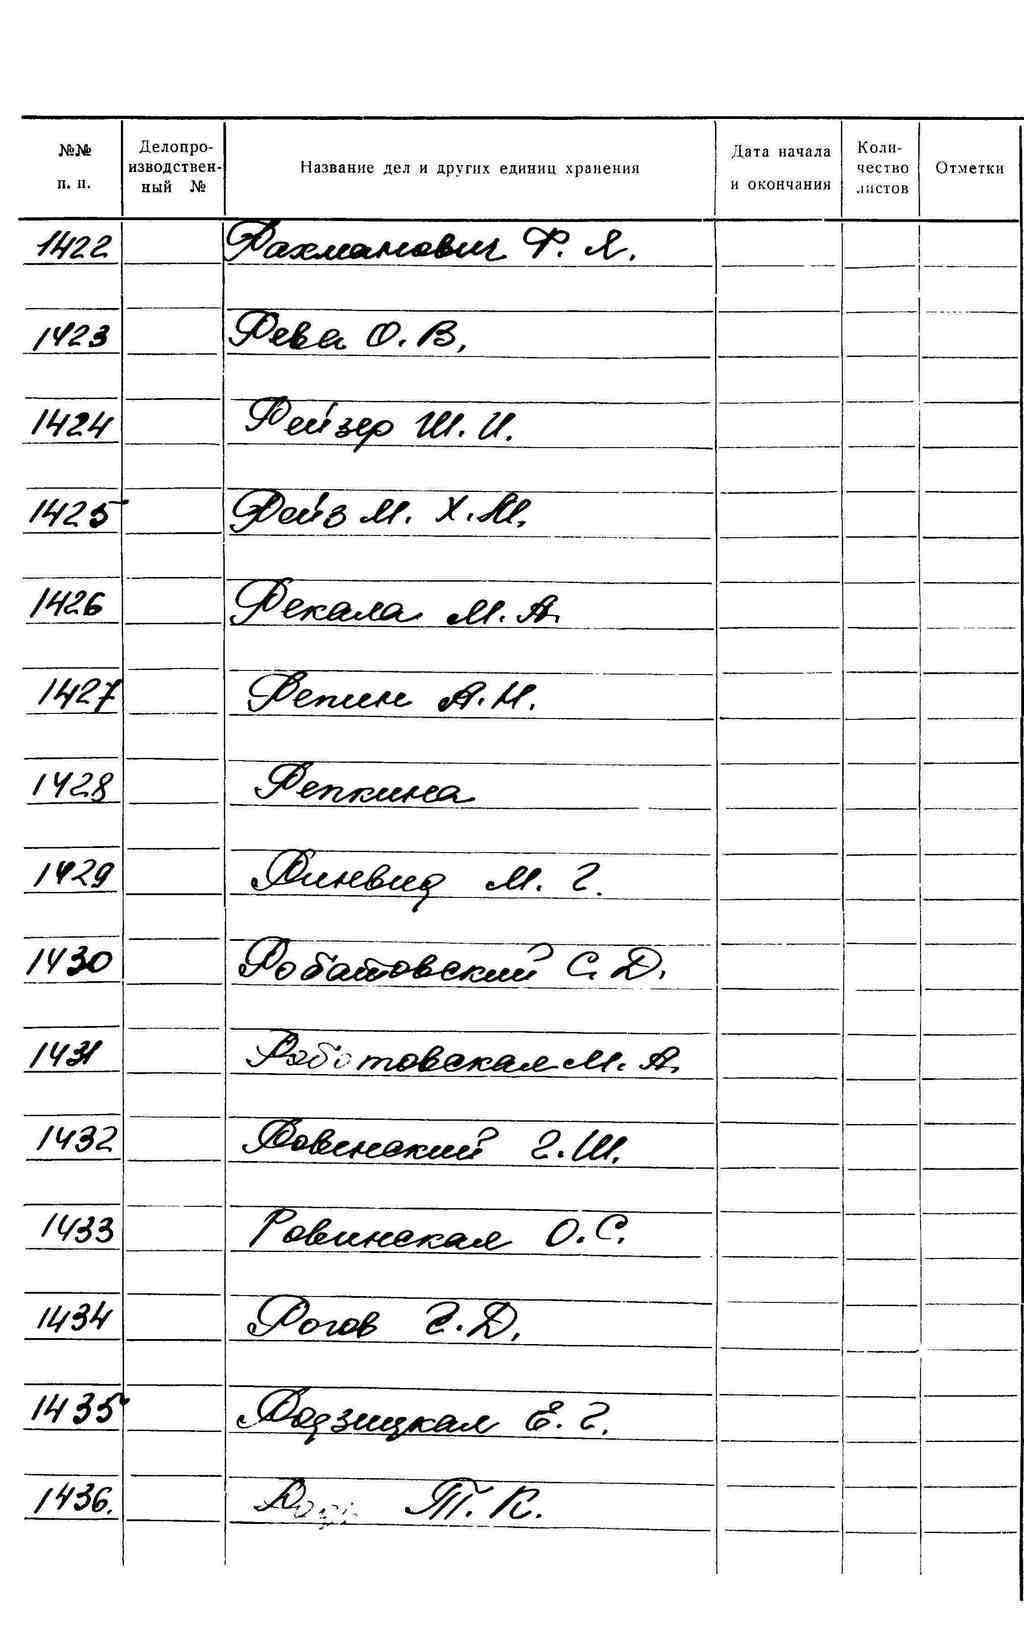 №№ п. п. Делопро-изводствен-ный № Название дел и других единиц хранения Дата начала и окончания Коли-чество листов Отметки
1422 Рахманович Ф. Я.
1423 Рева О. В.
1424 Рейзер Ш. И.
1425 Рейз М. Х.М.
1426 Рекала М. А.
1427 Репин А. Н.
1428 Репкина
1429 Ринвид М. Г.
1430 Робатовский С. Д.
1431 Роботовская М. А.
1432 Ровенский Г. Ш.
1433 Ровинская О. С.
1434 Рогов Г. Д.
1435 Родзицкая Е. Г.
1436. Т. К.